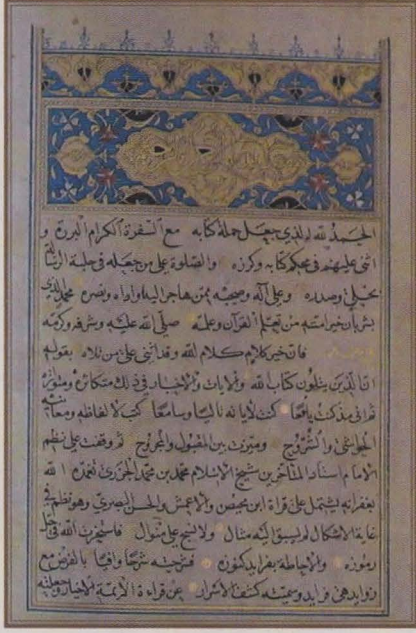 الحمد لله الذي جعل حملة كتابه مع السفرة الكرام البررة و
اثنى عليهم في محكم كتابه وكرره والصلوة على من جعله في حلية الرسالة
مجلى وصدره وعلى آله وصحبه ممن هاجر اليه واواه ونصره محمد الذي
بشر بان خير امته من تعلم القرآن وعلمه صلى الله عليه وشرفه وكرمه
فان خير كلام كلام الله وقد اثنى على من تلاه بقوله
ان الذين يتلون كتاب الله والايات والاخبار في ذلك متكاثرة ومتواترة
ثم اني مذ كنت يافعا كنت لاياته تاليا وسامعا كتب لالفاظه ومعانيه
الحواشي والشروح وميزت بين المقبول والمجروح ثم وقفت على نظم
الامام استاد المتأخرين شيخ الاسلام محمد بن محمد الجزري تغمده الله
بغفرانه يشتمل على قراة ابن محيصن والاعمش والحسن البصري وهو نظم في
غاية الاشكال لم يسبق اليه مثال ولا نسج على منوال فاستخرت الله في حل
رموزه والاحاطة بفرايد كنوزه فشرحته شرحا وافيا بالغرض مع
زوايد هي فرايد وسميته كشف الاسرار عن قراءة الائمة الاخيار وجعلته